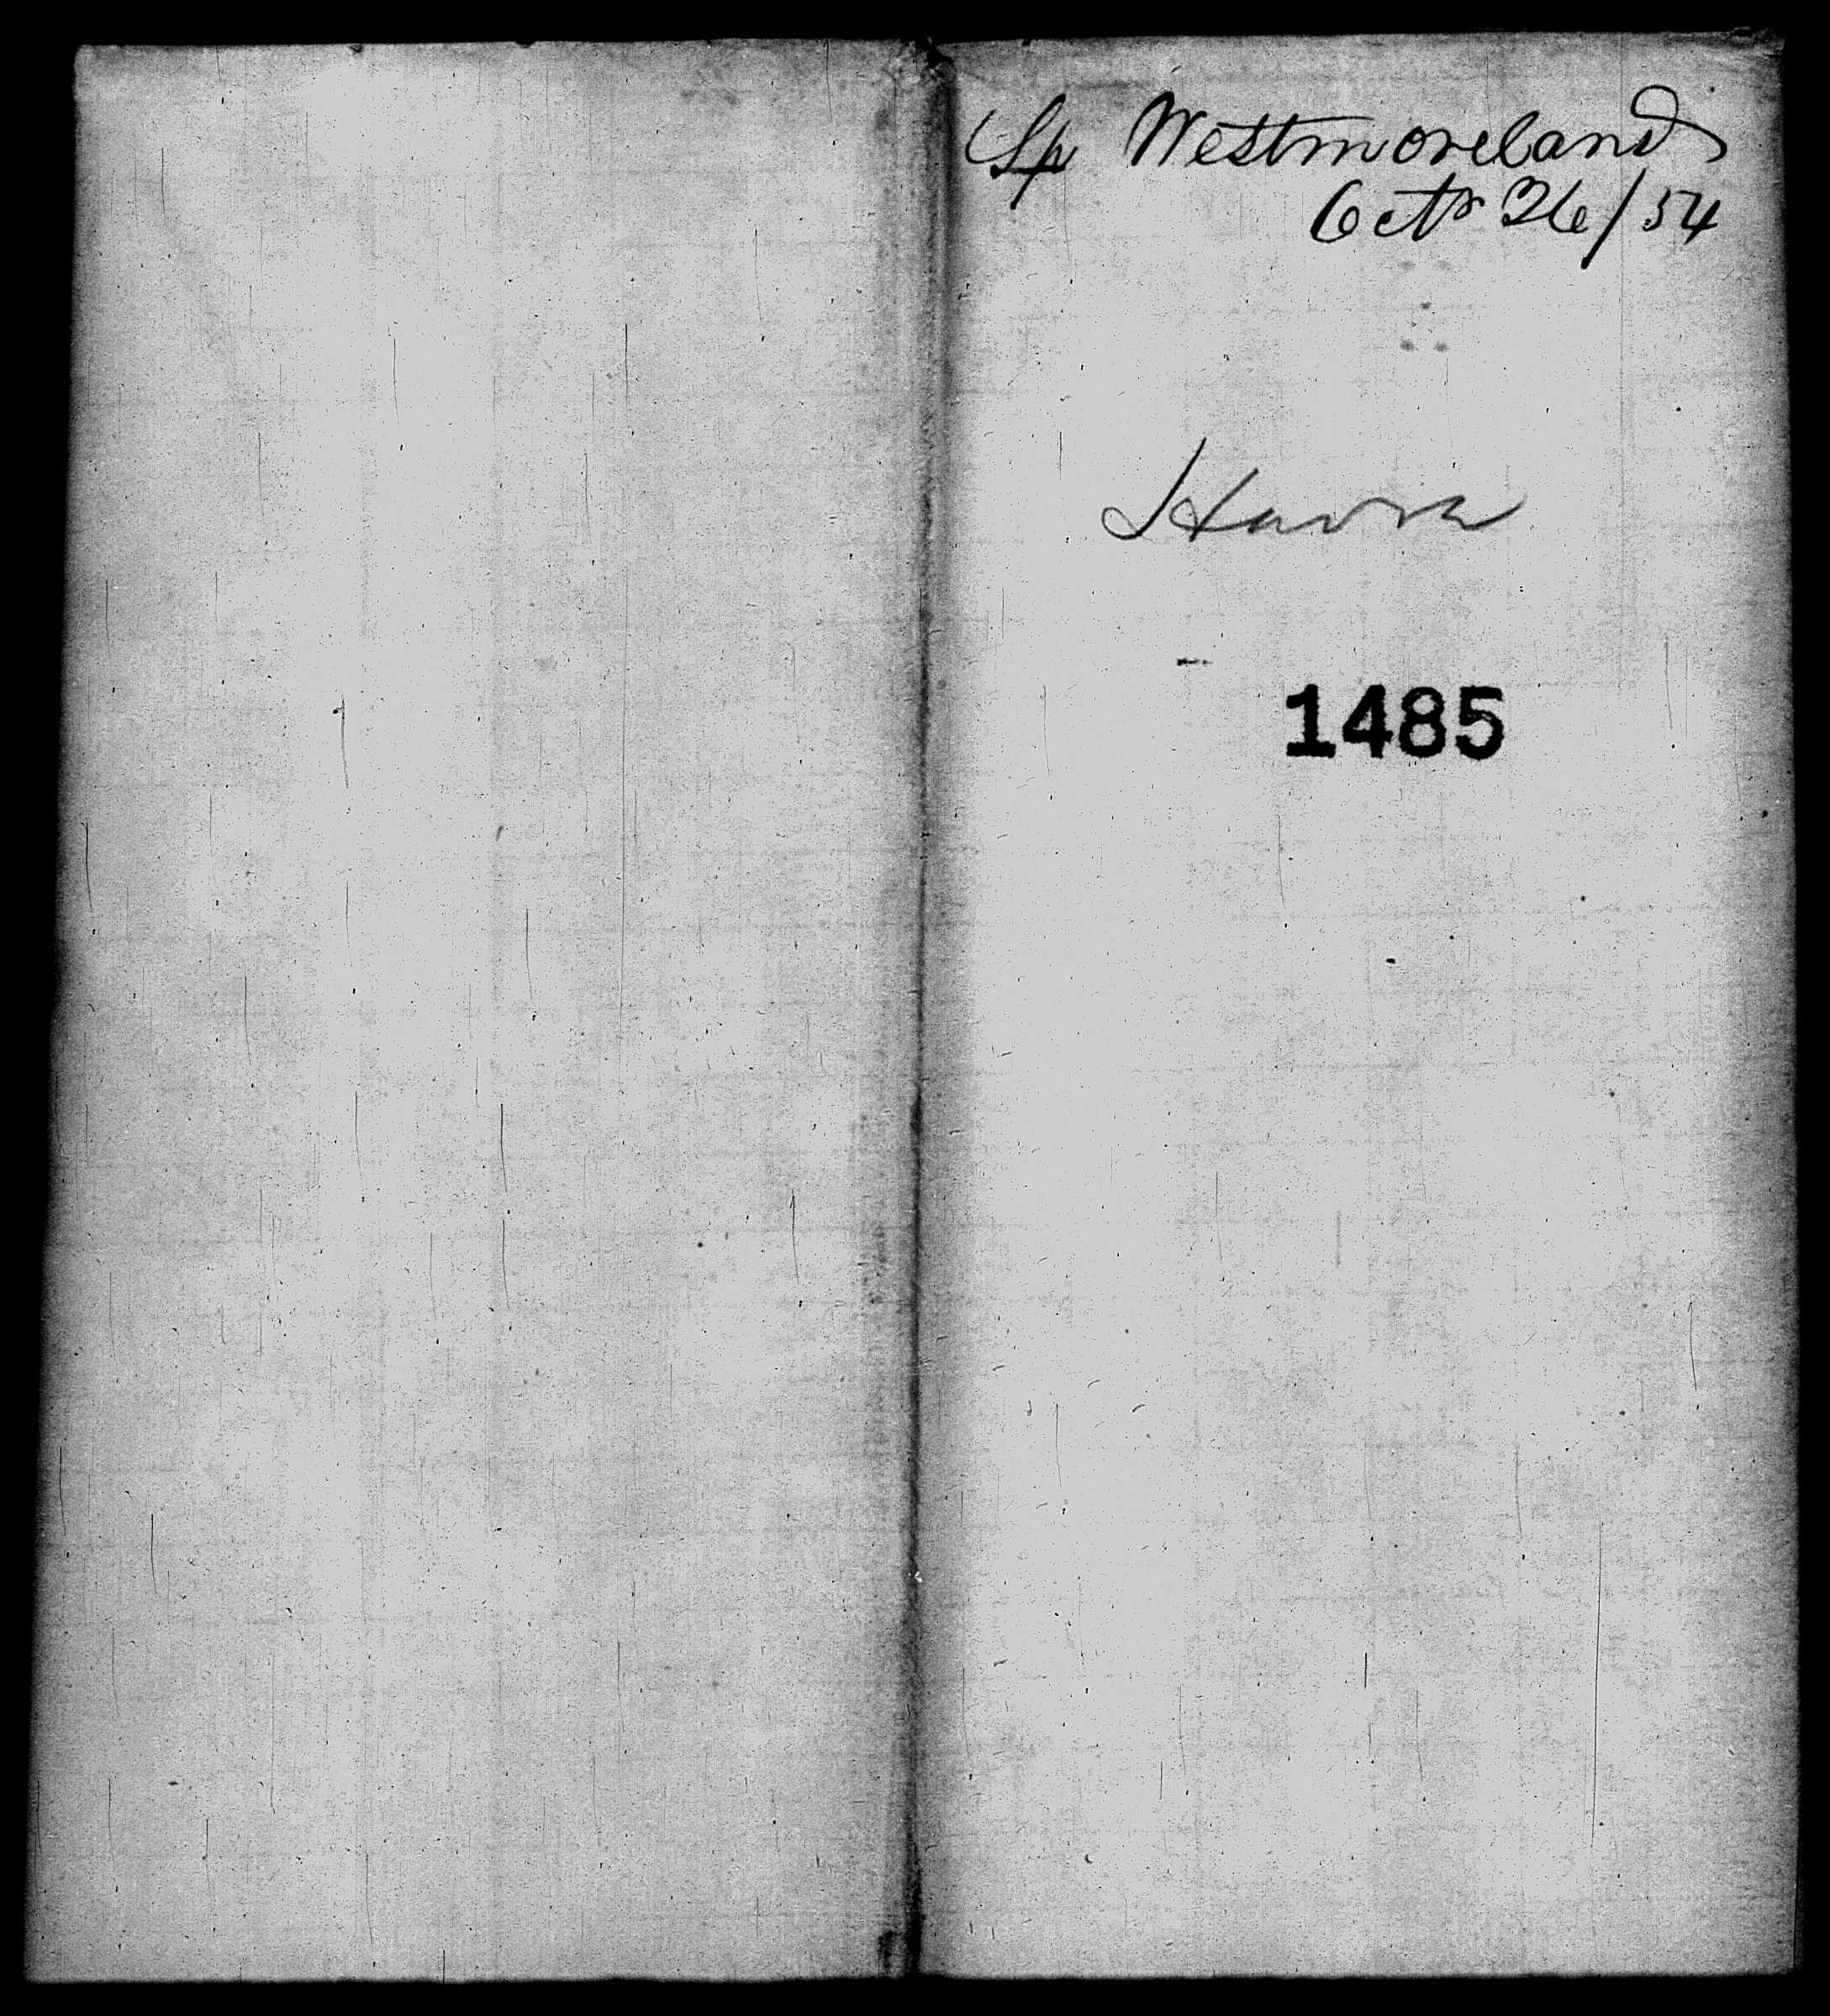 Sp Westmoreland
Octr 26/54
1485